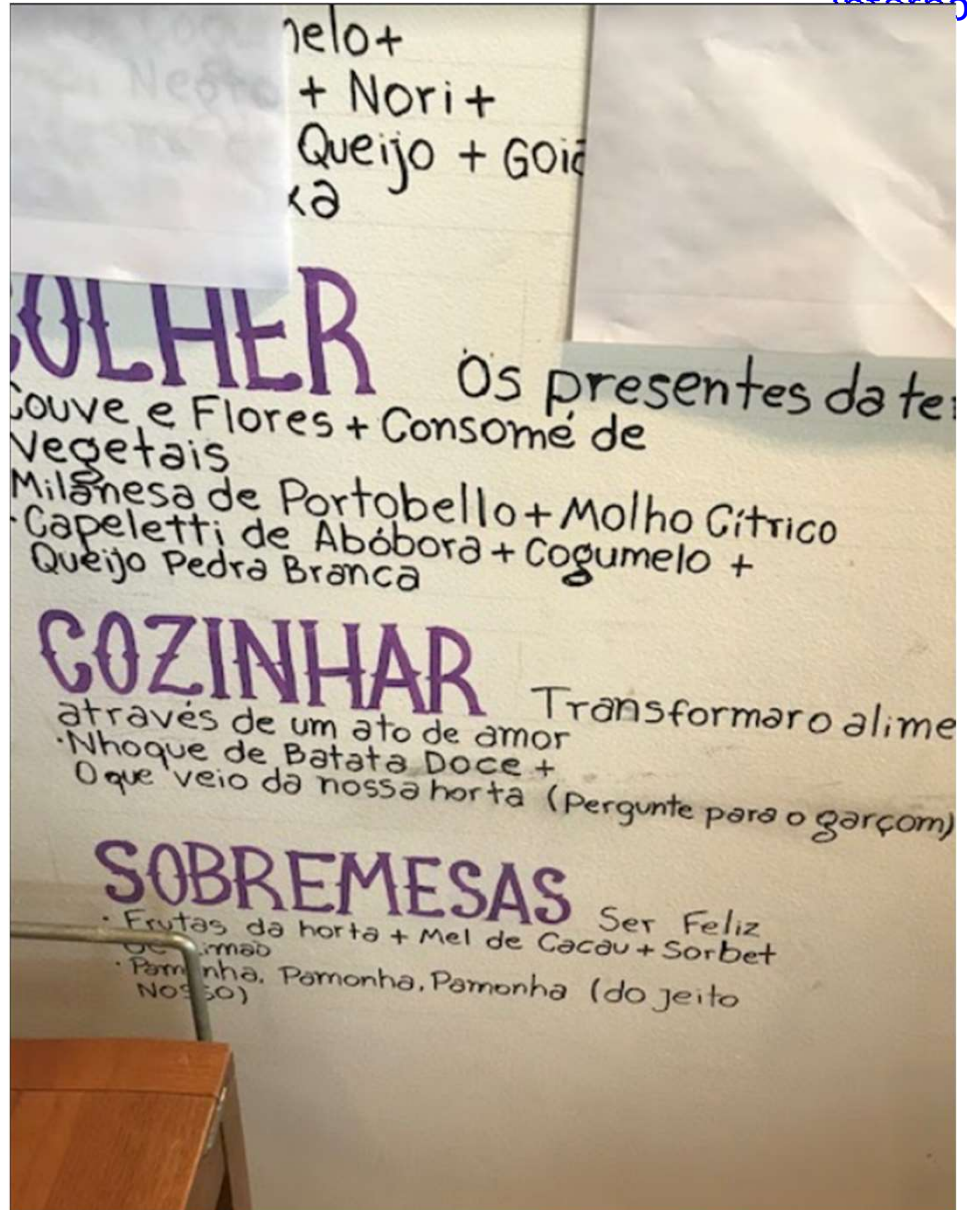 + Nori +
Queijo +
OLHER Os presentes da
Couve e Flores + Consomé de
Vegetais
Milanesa de Portobello + Molho Cítrico
· Capeletti de Abóbora + Cogumelo +
Queijo Pedra Branca
COZINHAR Transformar o alime
através de um ato de amor
· Nhoque de Batata Doce +
O que veio da nossa horta (Pergunte para o garçom)
SOBREMESAS Ser Feliz
· Frutas da horta + Mel de Cacau + Sorbet
· Pamonha, Pamonha, Pamonha (do jeito
NOSSO)